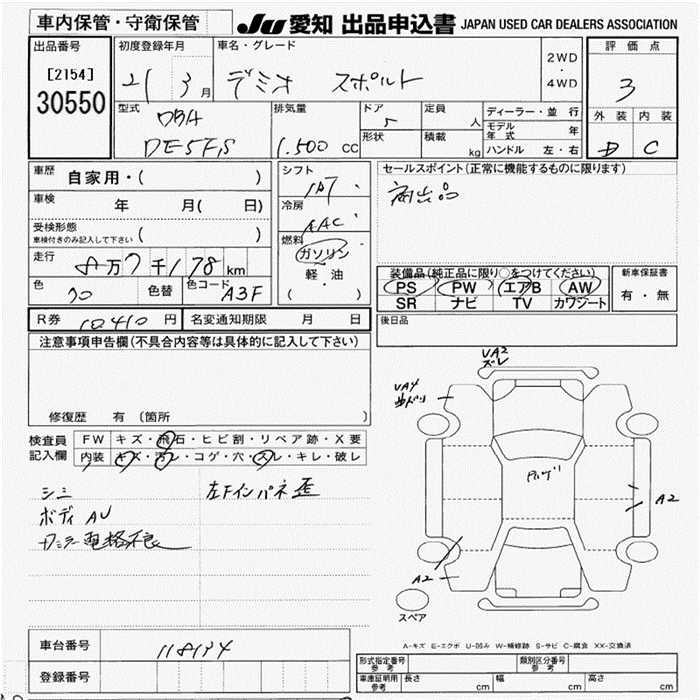 車内保管・守衛保管 JU 愛知 出品申込書 JAPAN USED CAR DEALERS ASSOCIATION
出品番号 初度登録年月 車名・グレード 2WD ・ 4WD 評価点
[2154] 30550 21 3月 デミオ スポルト 3
型式 DBA DE5FS 排気量 1.500 cc ドア 5 定員 人 ディーラー・並行 外装 内装
形状 積載 kg モデル年式 年 D C
ハンドル 左・右
車歴 自家用・( ) シフト セールスポイント(正常に機能するものに限ります)
車検 年 月( 日) 冷房 AAC
受検形態 車検付きのみ記入して下さい ( ) 燃料 ガソリン・軽油・( )
走行 8万7千178km
装備品(純正品に限り○をつけてください) 新車保証書
PS PW エアB AW 有・無
SR ナビ TV カワシート
色 色替 色コード A3F
R券 10410円 名変通知期限 月 日 後日品
注意事項申告欄(不具合内容等は具体的に記入して下さい)
修復歴 有 (箇所
検査員記入欄 FW キズ・飛石・ヒビ割・リペア跡・X要
内装 キズ・汚レ・コゲ・穴・スレ・キレ・破レ
シミ 左下インパネ歪
ボディAU
カミラー電格不良
VA2
ズレ
VA4
A2
A2
スペア
A-キズ E-エクボ U-凹み W-補修跡 S-サビ C-腐食 XX-交換済
車台番号 118174
登録番号
形式指定番号 参考 類別区分番号 参考
車庫証明用 参考 長さ cm 幅 cm 高さ cm